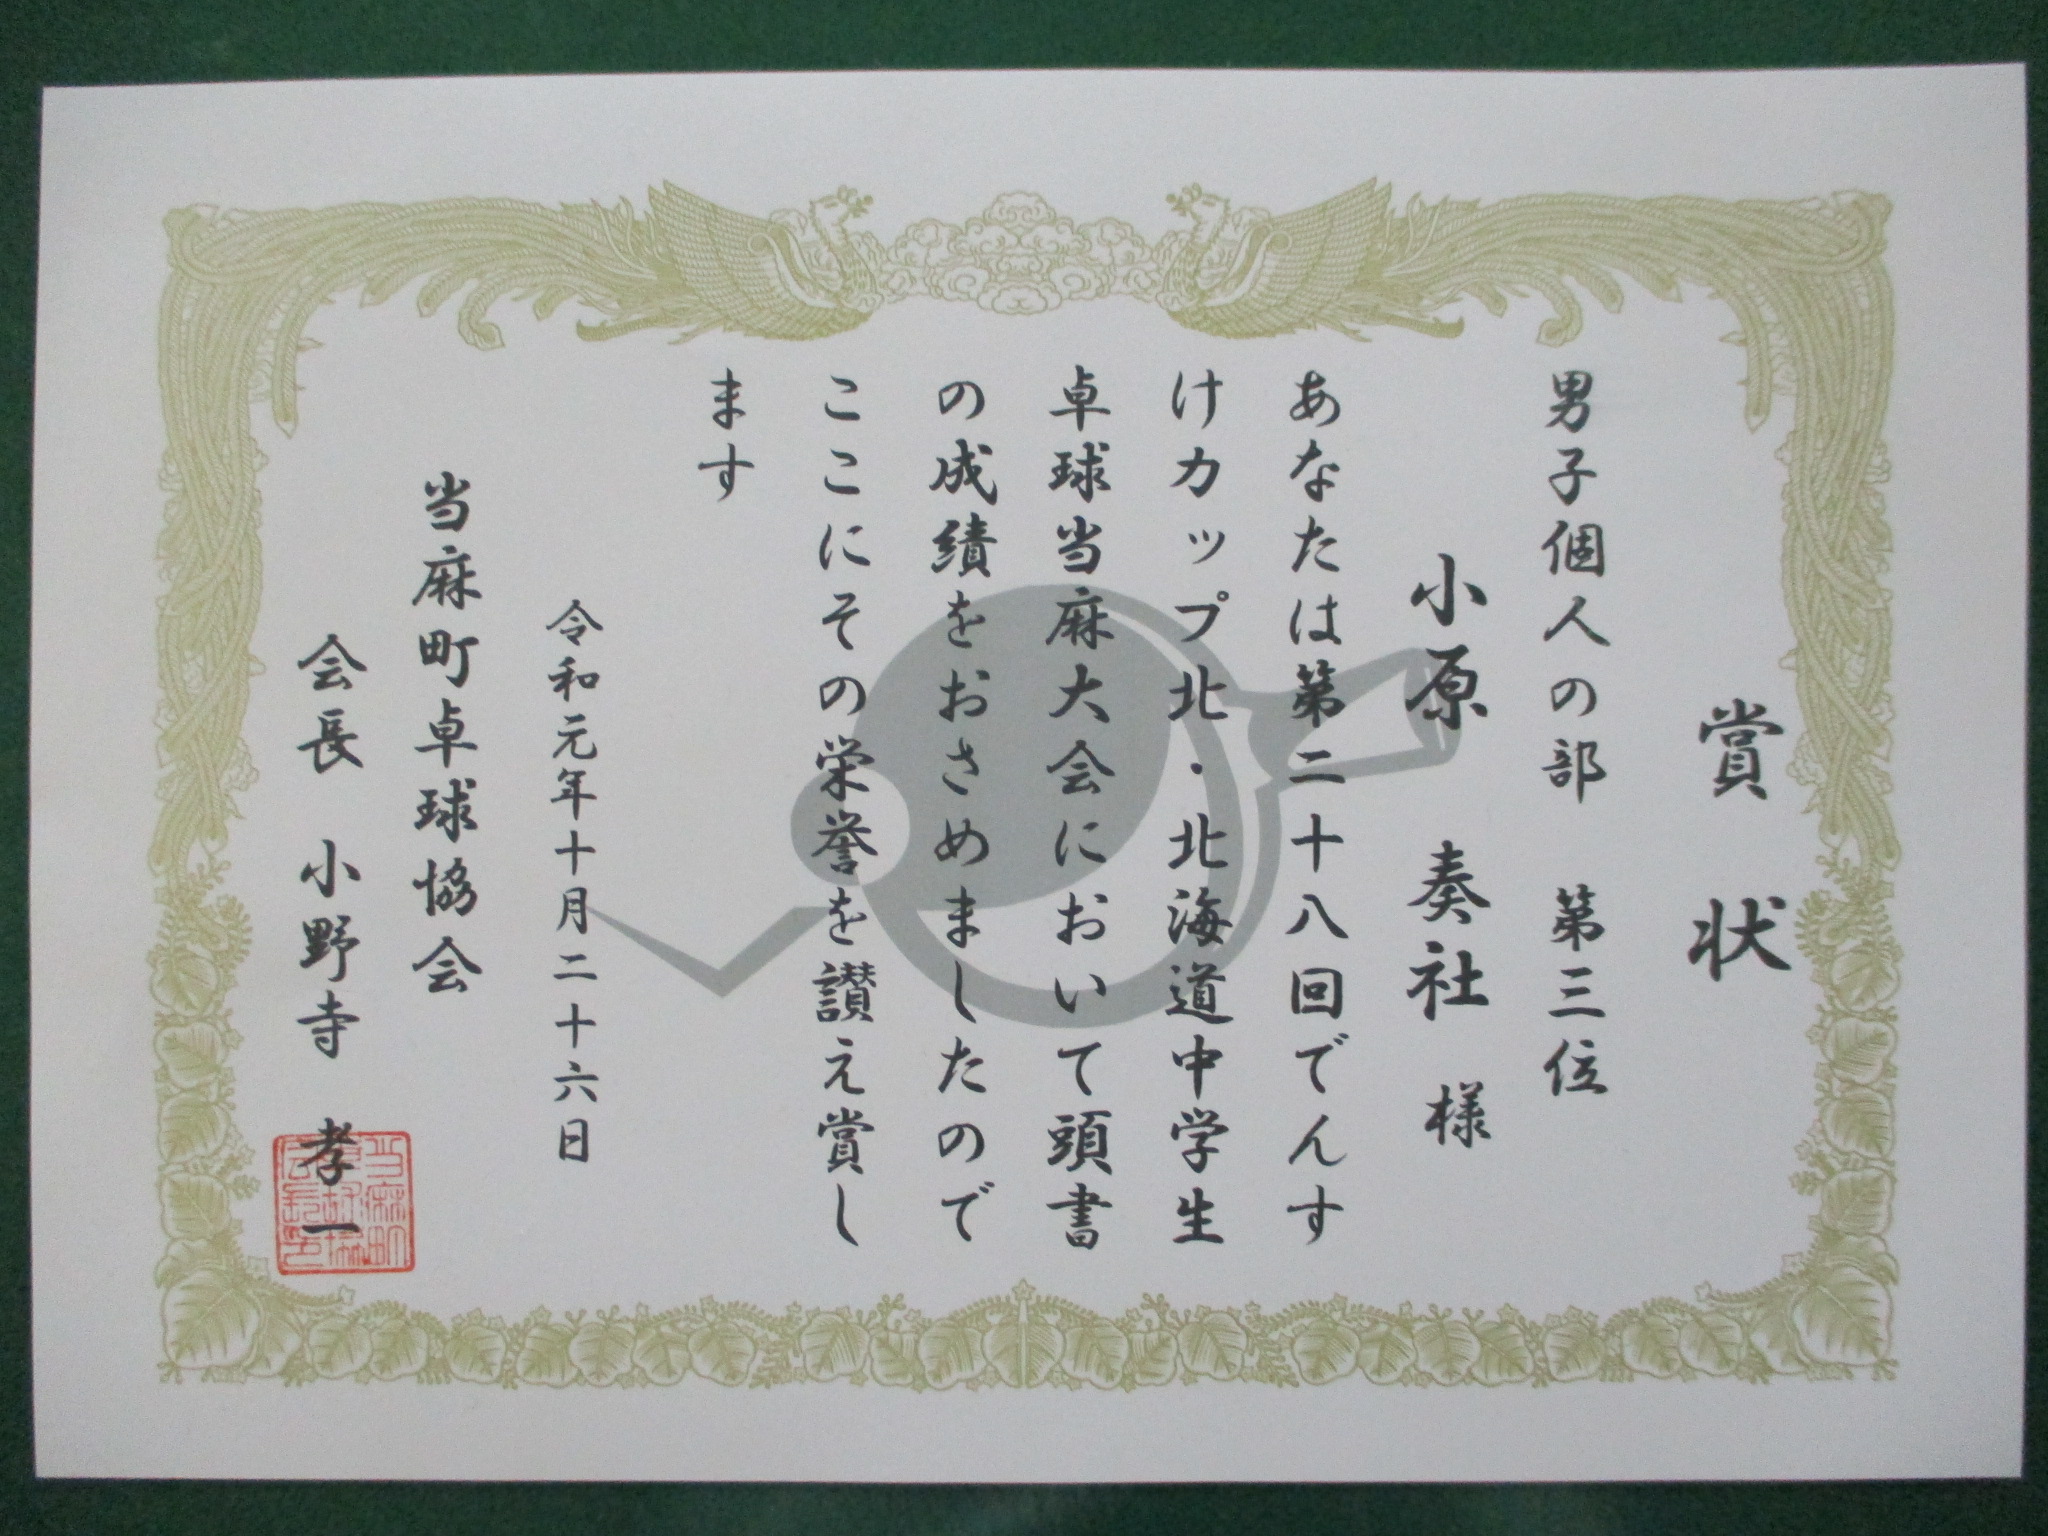 賞状
男子個人の部　第三位
小原　奏社　様
あなたは第二十八回でんす
けカップ北・北海道中学生
卓球当麻大会において頭書
の成績をおさめましたので
ここにその栄誉を讃え賞し
ます
令和元年十月二十六日
当麻町卓球協会
会長　小野寺　孝一